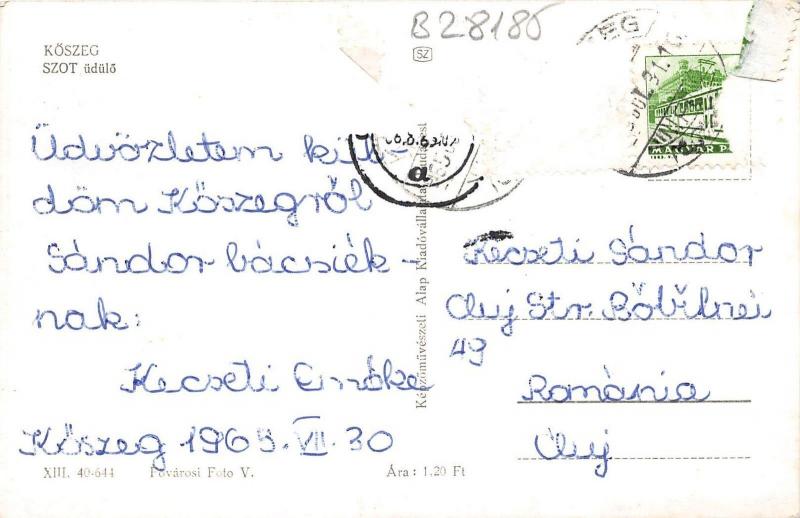 B28185
KŐSZEG
SZOT üdülő
SZ
MAGYAR P.
Üdvözletem kül-
döm Kőszegről
Sándor bácsiék-
nak:
Kecseti Emőke
Kőszeg 1965.VII.30
XIII. 40-644 Fővárosi Foto V. Ára: 1,20 Ft
Képzőművészeti Alap Kiadóvállalata, Budapest
a
Kecseti Sándor
Cluj Str.
49
România
Cluj